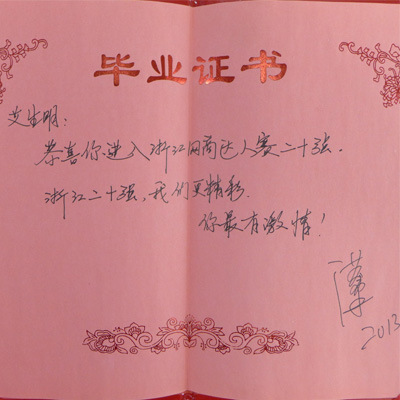 毕业证书
艾生明:
恭喜你进入浙江网商达人赛二十强.
浙江二十强,我们更精彩.
你最有激情!
2013